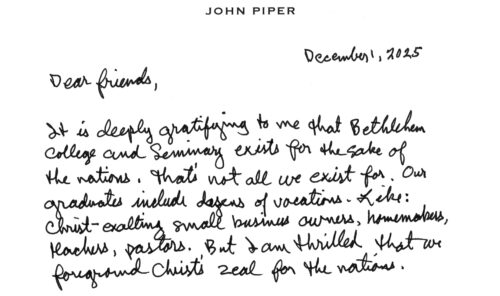 JOHN PIPER
December 1, 2025
Dear friends,
It is deeply gratifying to me that Bethlehem
College and Seminary exists for the sake of
the nations. That's not all we exist for. Our
graduates include dozens of vocations. Like:
Christ-exalting small business owners, homemakers,
teachers, pastors. But I am thrilled that we
foreground Christ's zeal for the nations.